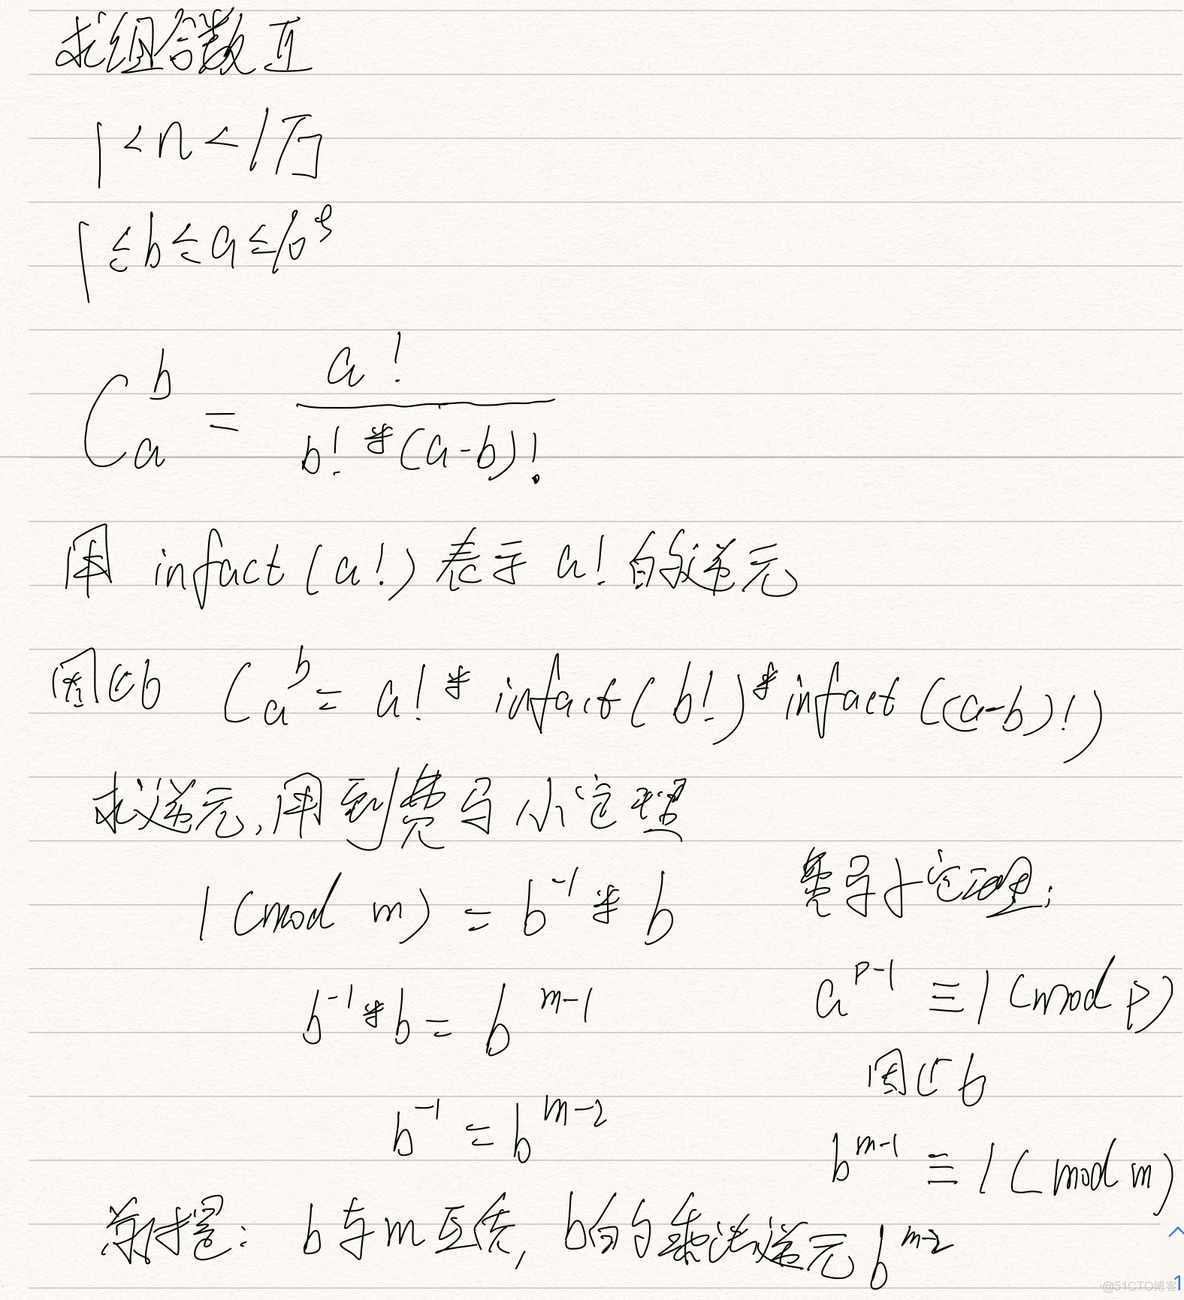 求组合数 II
1 < n < 1万
1 ≤ b ≤ a ≤ 10⁵
C_a^b = a! / (b! * (a-b)!)
用 infact(a!) 表示 a! 的逆元
因此 C_a^b = a! * infact(b!) * infact((a-b)!)
求逆元,用到费马小定理
费马小定理:
1 (mod m) = b⁻¹ * b
a^(p-1) ≡ 1 (mod p)
b⁻¹ * b = b^(m-1)
因此
b⁻¹ = b^(m-2)
b^(m-1) ≡ 1 (mod m)
前提: b与m互质, b的乘法逆元 b^(m-2)
@51CTO博客
1